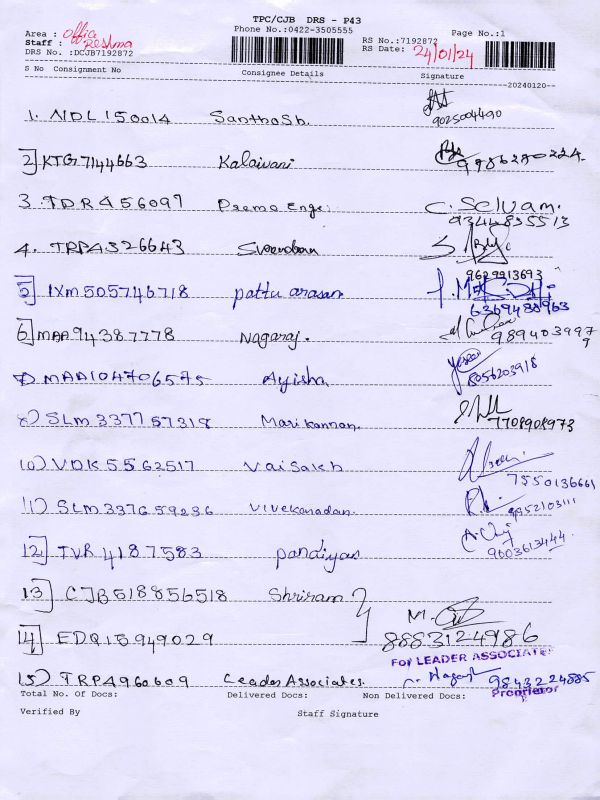 TPC/CJB DRS - P43
Area : office
Phone No.:0422-3505555
Page No.:1
Staff : Reshma
RS No.:7192872
DRS No. :DCJB7192872
RS Date: 24/01/24
S No Consignment No Consignee Details Signature
--20240120--
1. NDL150014 Santhosh. 9025004490
2] KTG7144663 Kalaivani
3. TDR456097 Prema Enge: C. Selvam. 9344835513
4. TRP4326643 9629913693
5] IXM505746718 Pattu arasan 6369488963
6] MAA94387778 Nagaraj. 9894039979
7) MAA104706575 Ayisha 8056203918
8) SLM337757318 Mari kannan. 7708908973
10) VDK5562517 Vaisakh 7550136661
11) SLM337659236 Vivekanadan. 9952103111
12] TVR4187583 pandiyan 9003613444
13] CJB518856518 Shriram
14] EDQ15949029 8883124986
FOR LEADER ASSOCIATES
15) TRP4960609 Leader Associates. 9843224885
Proprietor
Total No. Of Docs: Delivered Docs: Non Delivered Docs:
Verified By Staff Signature